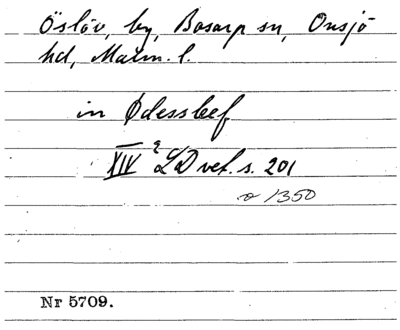 Öslöv, by, Bosarp sn, Onsjö
hd, Malm. l.
in Ødesslef
XIV 2 LD vet. s. 201
o 1350
Nr 5709.